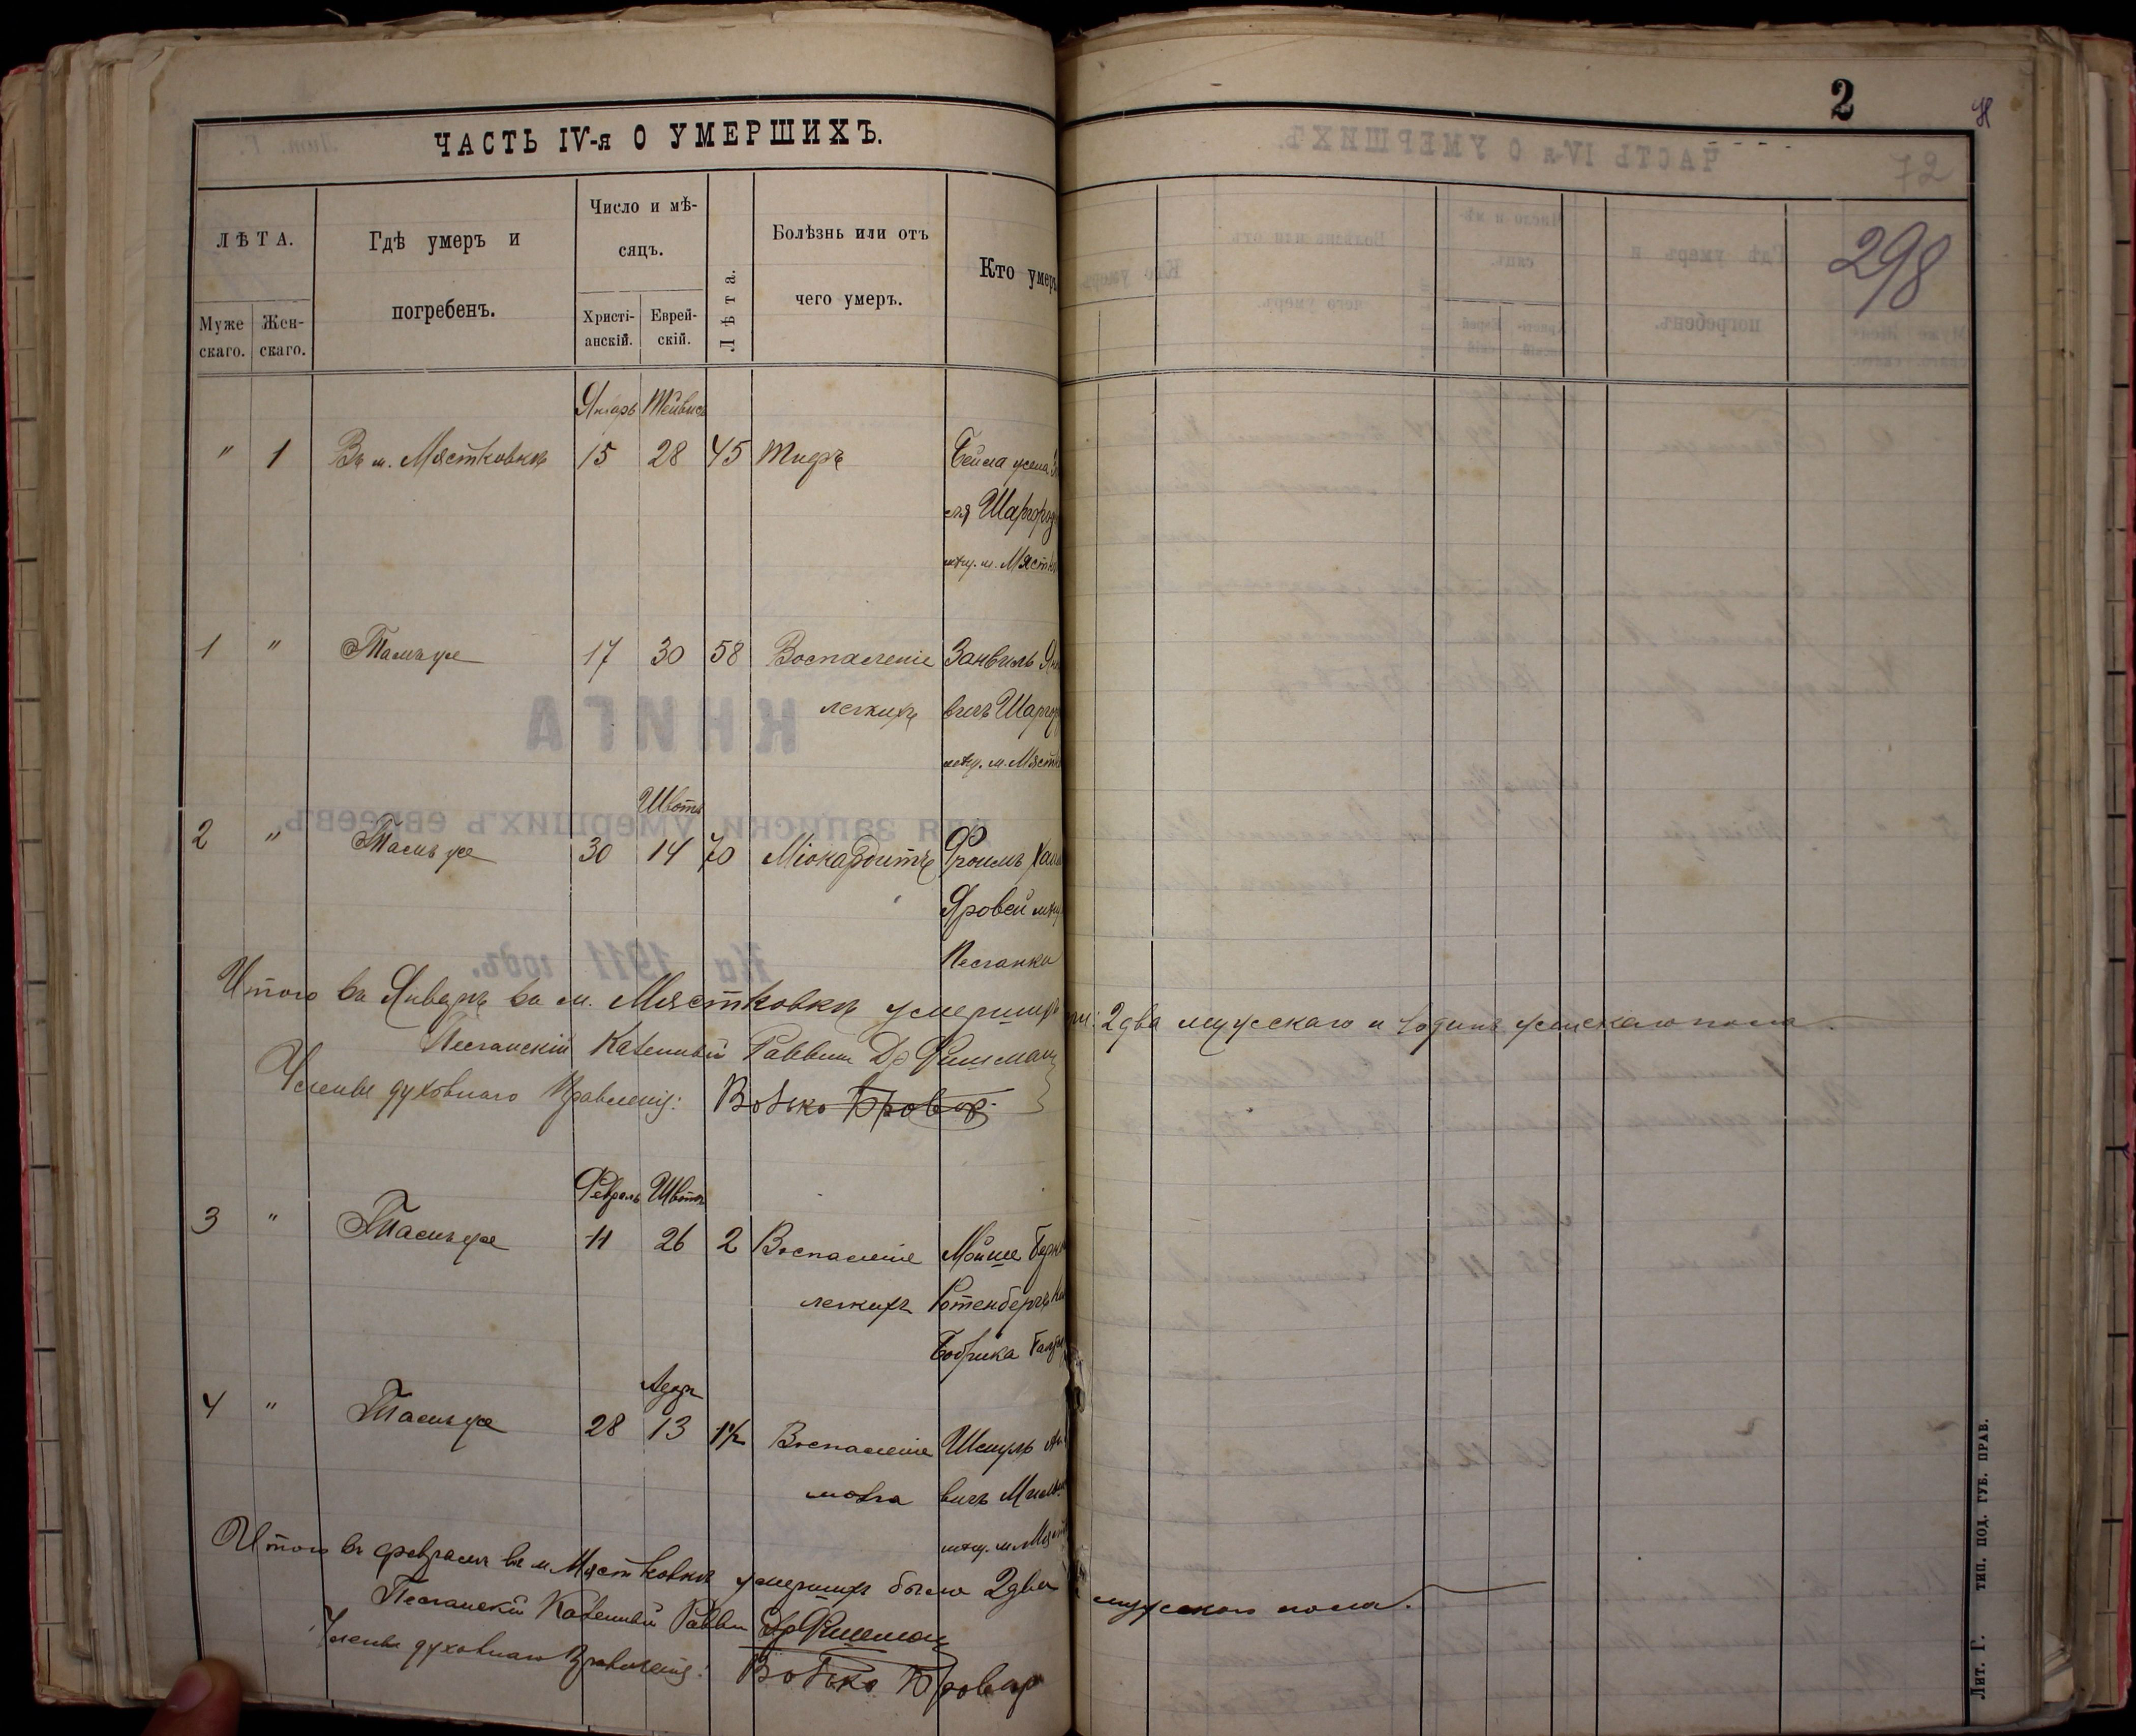 2
ЧАСТЬ IV-я О УМЕРШИХЪ.
72
298
ЛѢТА.
Муже
скаго.
Жен-
скаго.
Гдѣ умеръ и
погребенъ.
Число и мѣ-
сяцъ.
Христі-
анскій.
Еврей-
скій.
Лѣта.
Болѣзнь или отъ
чего умеръ.
Кто умеръ
Январь Тейвисъ
" 1 Въ м. Мястковкѣ 15 28 45 Тифъ Бейла жена
Шаргород
мѣщ. м. Мястк
1 " Тамъ же 17 30 58 Воспаленіе Занвиль
легкихъ вичъ Шаргор
мѣщ. м. Мястк
Шватъ
2 " Тамъ же 30 14 70 Міокардитъ Фроимъ
Яровой мѣщ
Песчанки
Итого въ Январѣ въ м. Мястковкѣ умершихъ 2 два мужскаго и 1 одинъ женскаго пола.
Песчанскій Казенный Раввинъ Др Фишманъ
Члены духовнаго Правленія: Волько Бровар
Февраль Шватъ
3 " Тамъ же 11 26 2 Воспаленіе Мойше Берк
легкихъ Ротенбергъ
Бобрика
Адаръ
4 " Тамъ же 28 13 1½ Воспаленіе Шмуль
мозга вичъ
мѣщ. м. Мяст
Итого въ февралѣ въ м. Мястковкѣ умершихъ было 2 два мужского пола.
Песчанскій Казенный Раввин Др Фишман
Члены духовнаго Правленія: Волько Бровар
КНИГА
для записки умершихъ евреевъ
На 1911 годъ.
Лит. Г. ТИП. ПОД. ГУБ. ПРАВ.